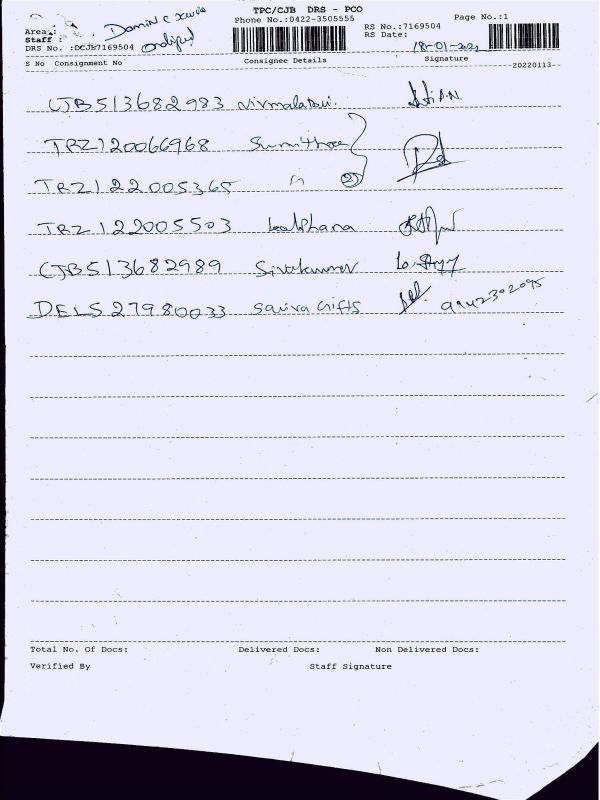 TPC/CJB DRS - PCO
Phone No.:0422-3505555
Page No.:1
RS No.:7169504
RS Date: 18-01-2022
Area:
Staff : Dominic Xavier
DRS No. :DCJB7169504
S No Consignment No Consignee Details Signature
20220113
CJB513682983 Nirmaladevi.
TRZ120066968 Sumithra
TRZ122005365 〃 (2)
TRZ122005503 Kalphana
CJB513682989 Sivakumar
DEL527980033 Saurva Gifts 9442302095
Total No. Of Docs: Delivered Docs: Non Delivered Docs:
Verified By Staff Signature